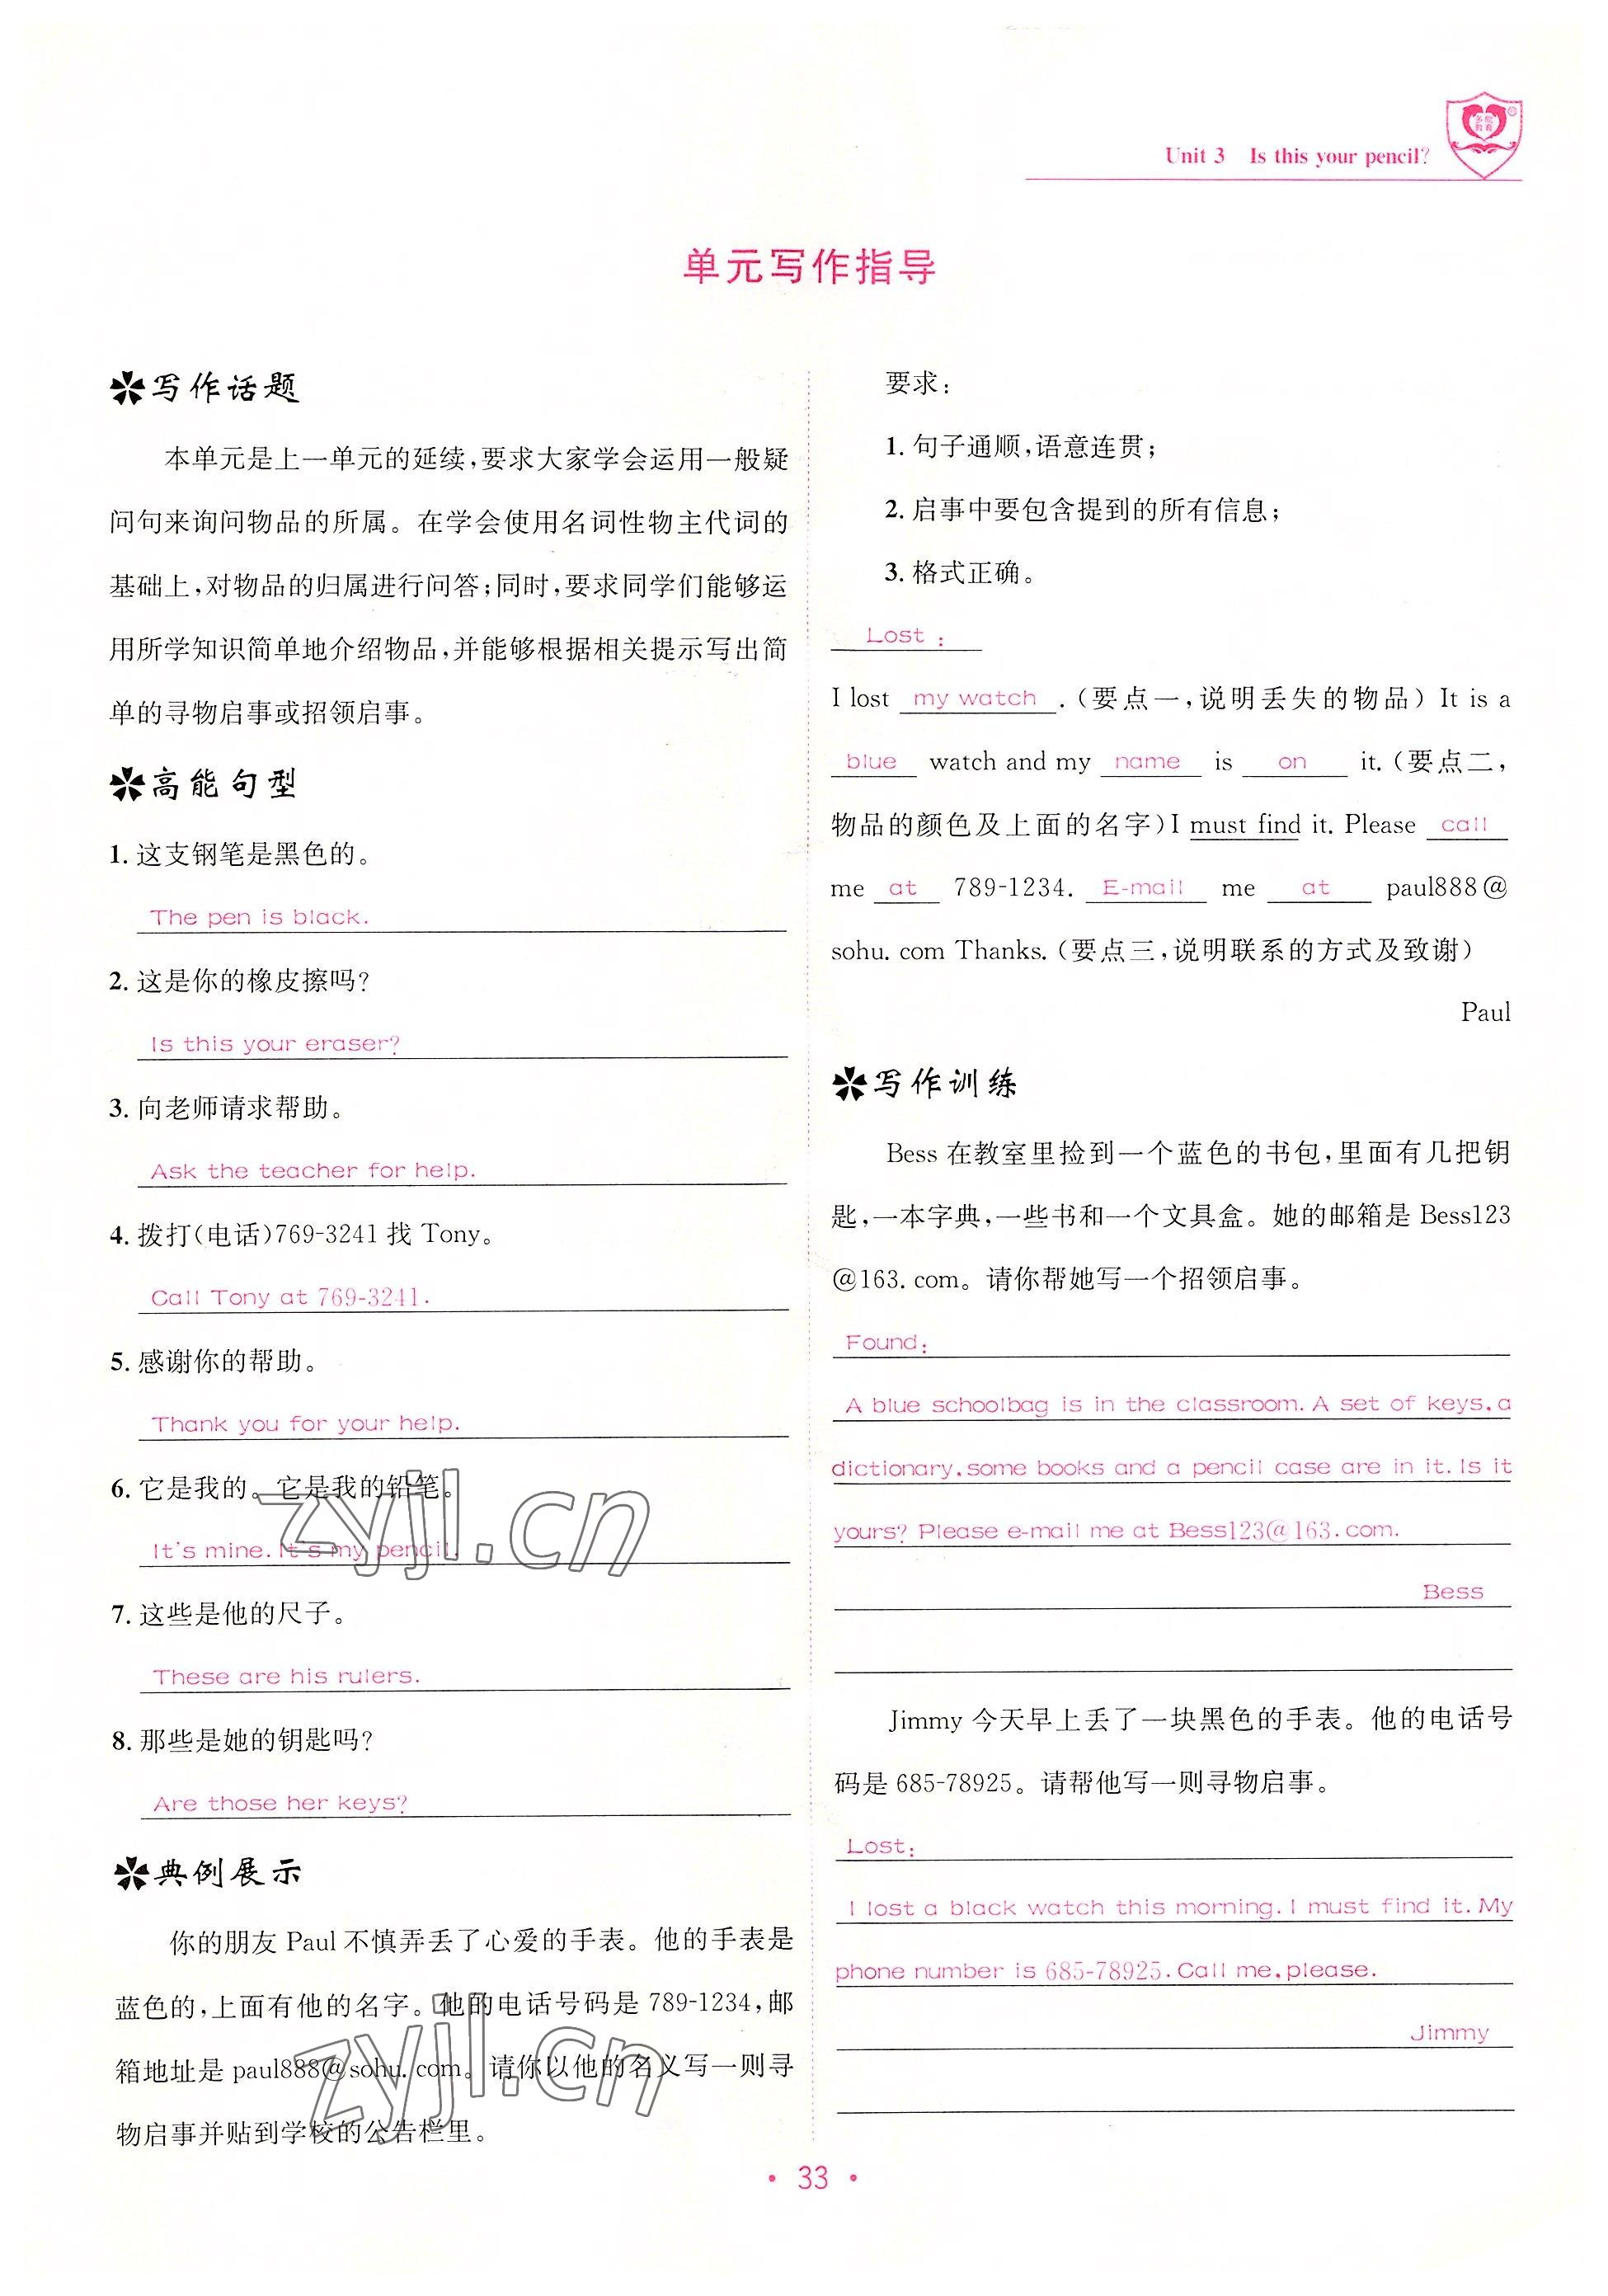 多能
教育
Unit 3 Is this your pencil?
单元写作指导
写作话题
本单元是上一单元的延续,要求大家学会运用一般疑
问句来询问物品的所属。在学会使用名词性物主代词的
基础上,对物品的归属进行问答;同时,要求同学们能够运
用所学知识简单地介绍物品,并能够根据相关提示写出简
单的寻物启事或招领启事。
高能句型
1. 这支钢笔是黑色的。
The pen is black.
2. 这是你的橡皮擦吗?
Is this your eraser?
3. 向老师请求帮助。
Ask the teacher for help.
4. 拨打(电话)769-3241 找 Tony。
Call Tony at 769-3241.
5. 感谢你的帮助。
Thank you for your help.
6. 它是我的。它是我的铅笔。
It's mine. It's my pencil.
7. 这些是他的尺子。
These are his rulers.
8. 那些是她的钥匙吗?
Are those her keys?
典例展示
你的朋友 Paul 不慎弄丢了心爱的手表。他的手表是
蓝色的,上面有他的名字。他的电话号码是 789-1234,邮
箱地址是 paul888@sohu.com。请你以他的名义写一则寻
物启事并贴到学校的公告栏里。
要求:
1. 句子通顺,语意连贯;
2. 启事中要包含提到的所有信息;
3. 格式正确。
Lost :
I lost my watch .(要点一,说明丢失的物品) It is a
blue watch and my name is on it. (要点二,
物品的颜色及上面的名字) I must find it. Please call
me at 789-1234. E-mail me at paul888@
sohu. com Thanks. (要点三,说明联系的方式及致谢)
Paul
写作训练
Bess 在教室里捡到一个蓝色的书包,里面有几把钥
匙,一本字典,一些书和一个文具盒。她的邮箱是 Bess123
@163. com。请你帮她写一个招领启事。
Found:
A blue schoolbag is in the classroom. A set of keys, a
dictionary, some books and a pencil case are in it. Is it
yours? Please e-mail me at Bess123@163. com.
Bess
Jimmy 今天早上丢了一块黑色的手表。他的电话号
码是 685-78925。请帮他写一则寻物启事。
Lost:
I lost a black watch this morning. I must find it. My
phone number is 685-78925. Call me, please.
Jimmy
zyjl.cn
zyjl.cn
· 33 ·